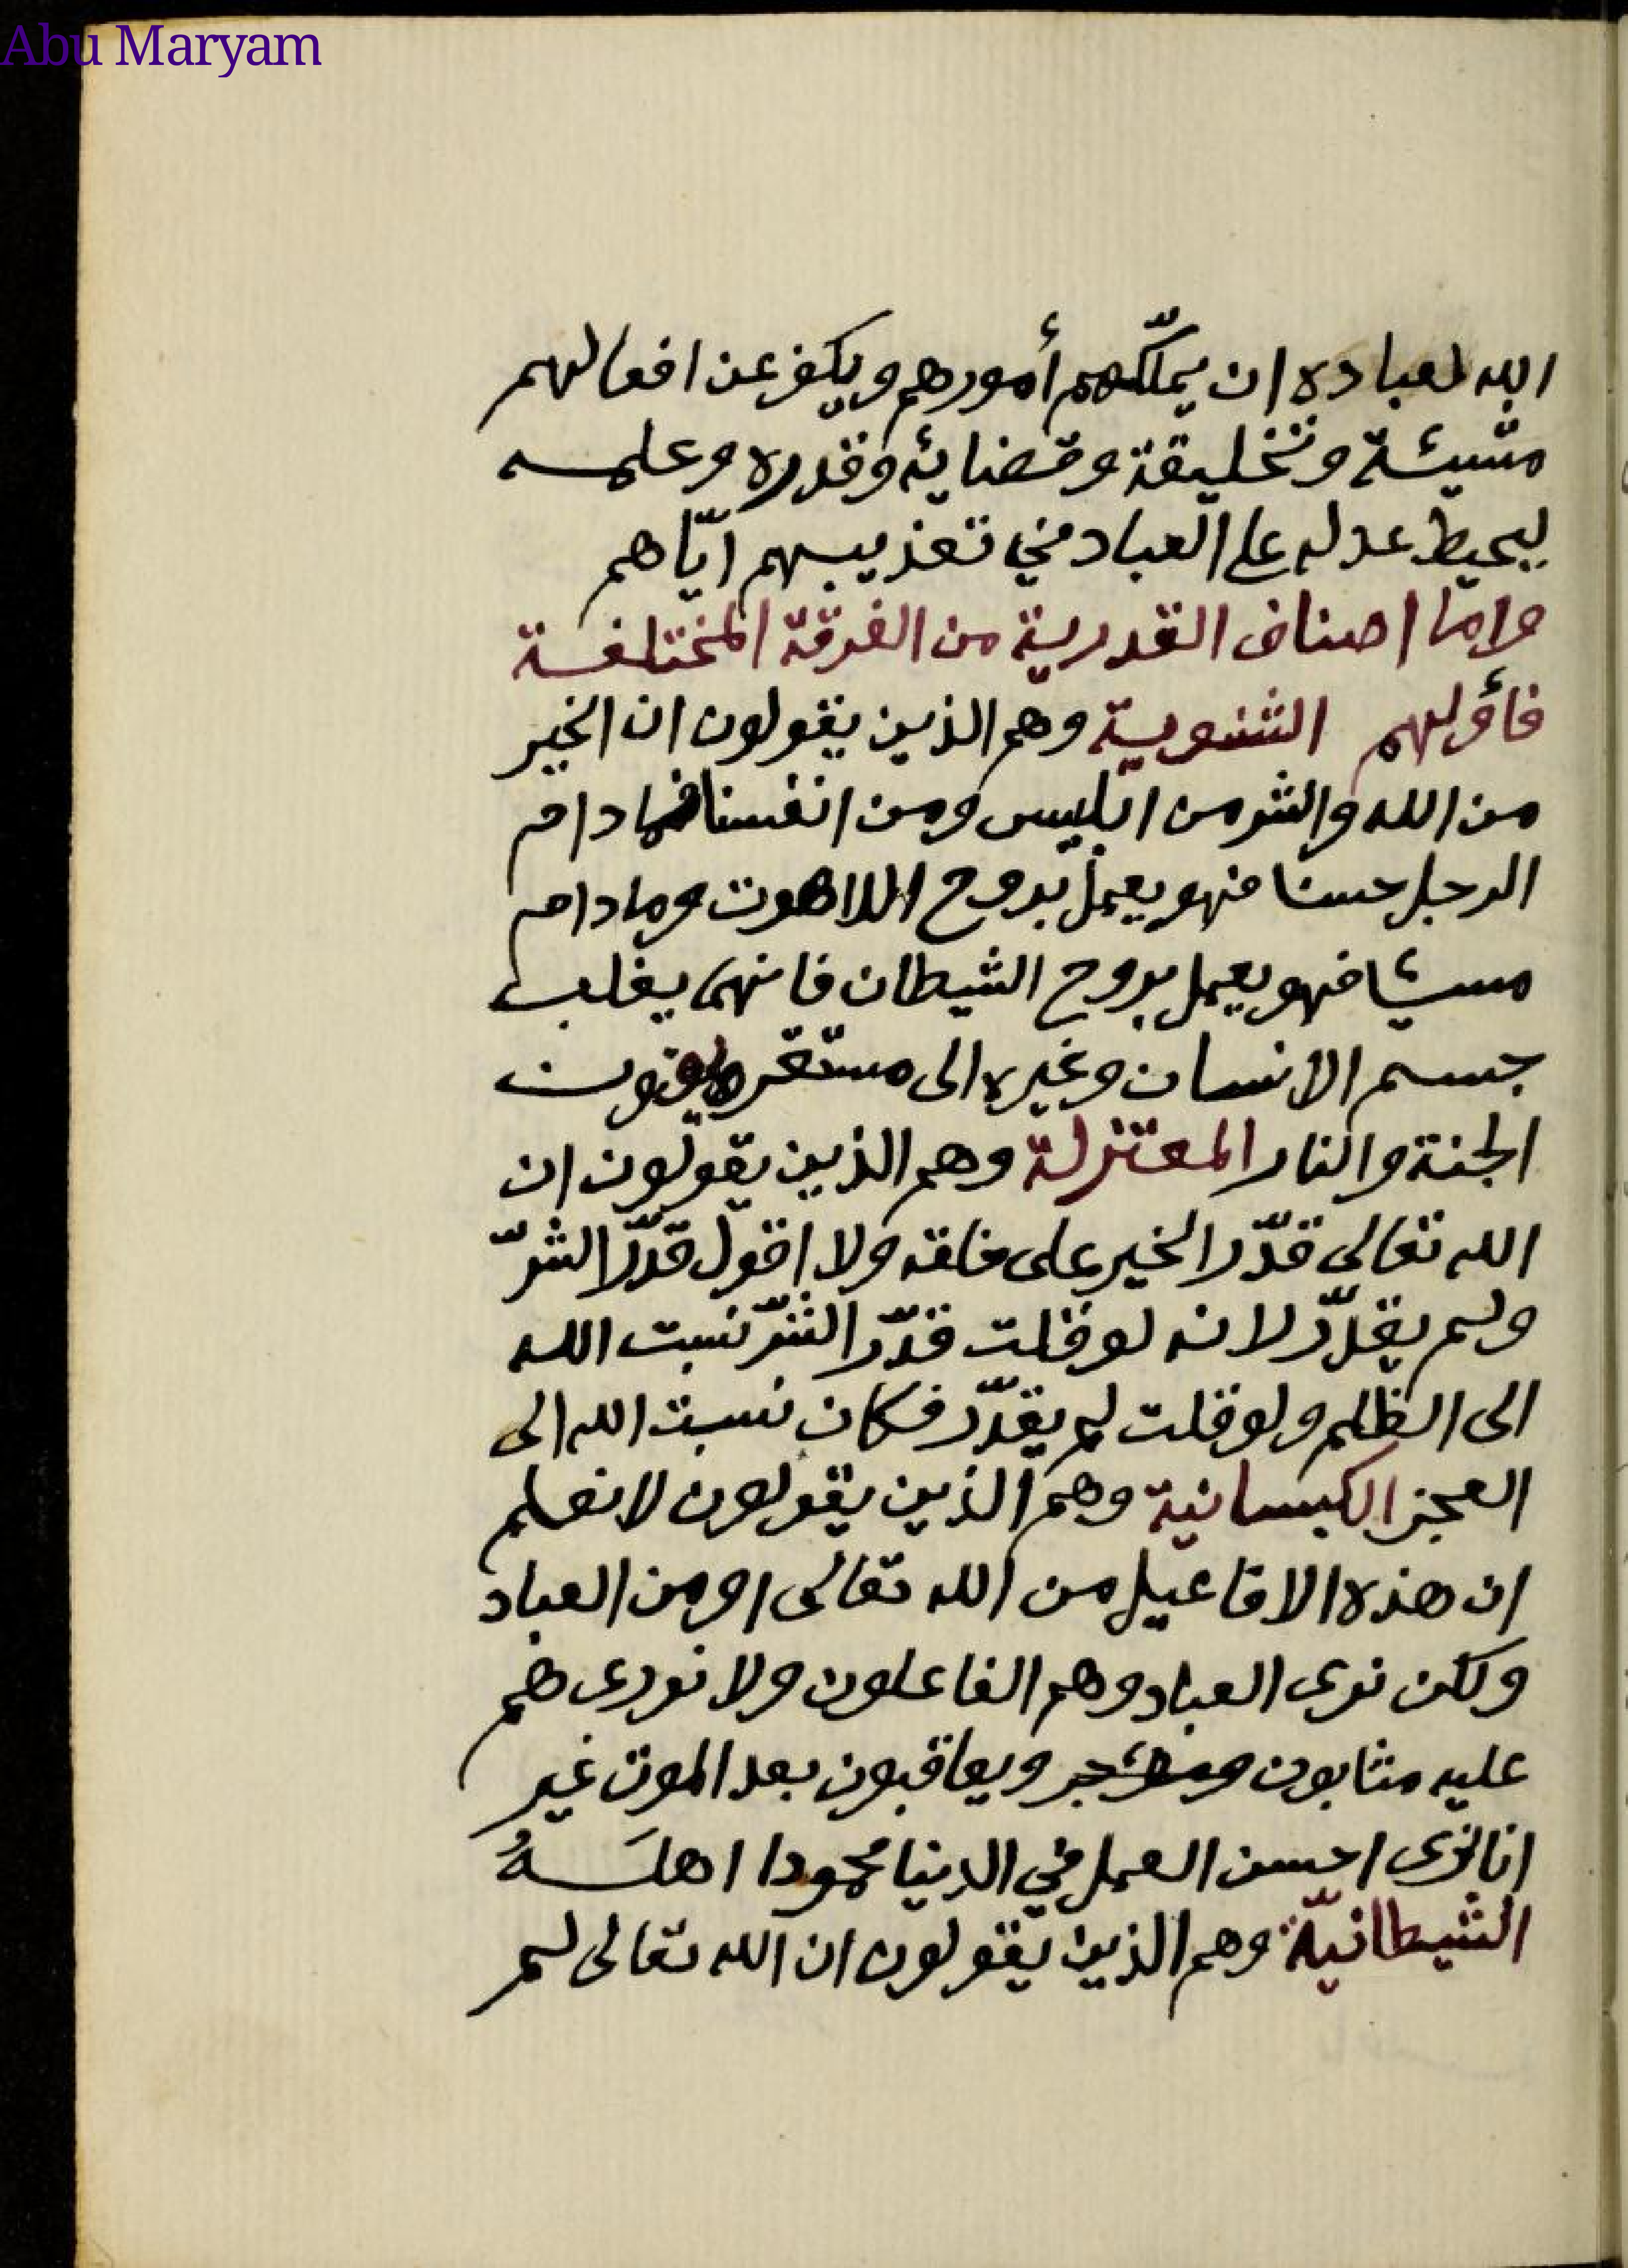 Abu Maryam
الله لعباده ان يملّكهم أمورهم ويكف عن افعالهم
مشيئة وتخليقة وقضايئه وقدره وعلمه
ليحيط عدله على العباد في تعذيبهم ايّاهم
واما اصناف القدرية من الفرقة المختلفة
فأولهم الثنوية وهم الذين يقولون ان الخير
من الله والشر من ابليس ومن انفسنا فما دام
الرجل حسنا فهو يعمل بروح اللاهوت وما دام
مسيئا فهو يعمل بروح الشيطان فانهما يغلب
جسم الانسان وغيره الى مستقره
الجنة والنار المعتزلة وهم الذين يقولون ان
الله تعالى قدّر الخير على خلقه ولا اقول قدّر الشرّ
ولم يقدّر لانه لو قلت قدّر الشرّ نسبت الله
الى الظلم ولو قلت لم يقدّر فكان نسبت الله الى
العجز الكيسانية وهم الذين يقولون لا نعلم
ان هذه الافاعيل من الله تعالى او من العباد
ولكن نرى العباد وهم الفاعلون ولا نودى هم
عليه مثابون ويعاقبون بعد الموت غير
انا نرى احسن العمل في الدنيا محمودا اهلَهُ
الشيطانيّة وهم الذين يقولون ان الله تعالى لم